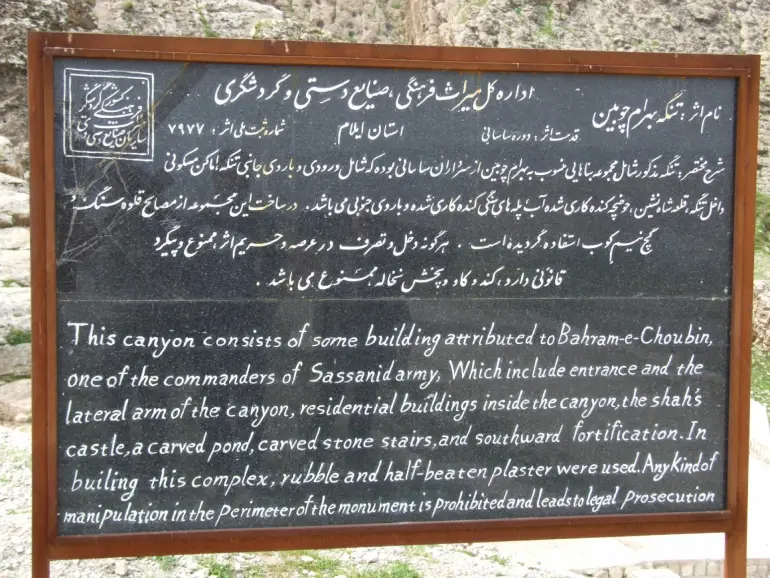 اداره کل میراث فرهنگی، صنایع دستی و گردشگری
نام اثر: تنگه بهرام چوبین قدمت اثر: دوره ساسانی استان ایلام شماره ثبت ملی اثر: ۷۹۷۷
شرح مختصر: تنگه مذکور شامل مجموعه بناهایی منسوب به بهرام چوبین از سرداران ساسانی بوده که شامل ورودی و باروی جانبی تنگه، اماکن مسکونی
داخل تنگه، قلعه شاه نشین، حوضچه کنده کاری شده آب، پله های سنگی کنده کاری شده و باروی جنوبی می باشد. در ساخت این مجموعه از مصالح قلوه سنگ و
گچ نیم کوب استفاده گردیده است. هرگونه دخل و تصرف در عرصه و حریم اثر، ممنوع و پیگرد
قانونی دارد، کند و کاو و پخش نخاله ممنوع می باشد.
This canyon consists of some building attributed to Bahram-e-Choubin,
one of the commanders of Sassanid army, Which include entrance and the
lateral arm of the canyon, residential buildings inside the canyon, the shah's
castle, a carved pond, carved stone stairs, and southward fortification. In
builing this complex, rubble and half-beaten plaster were used. Any Kind of
manipulation in the Perimeter of the monument is prohibited and leads to legal Prosecution